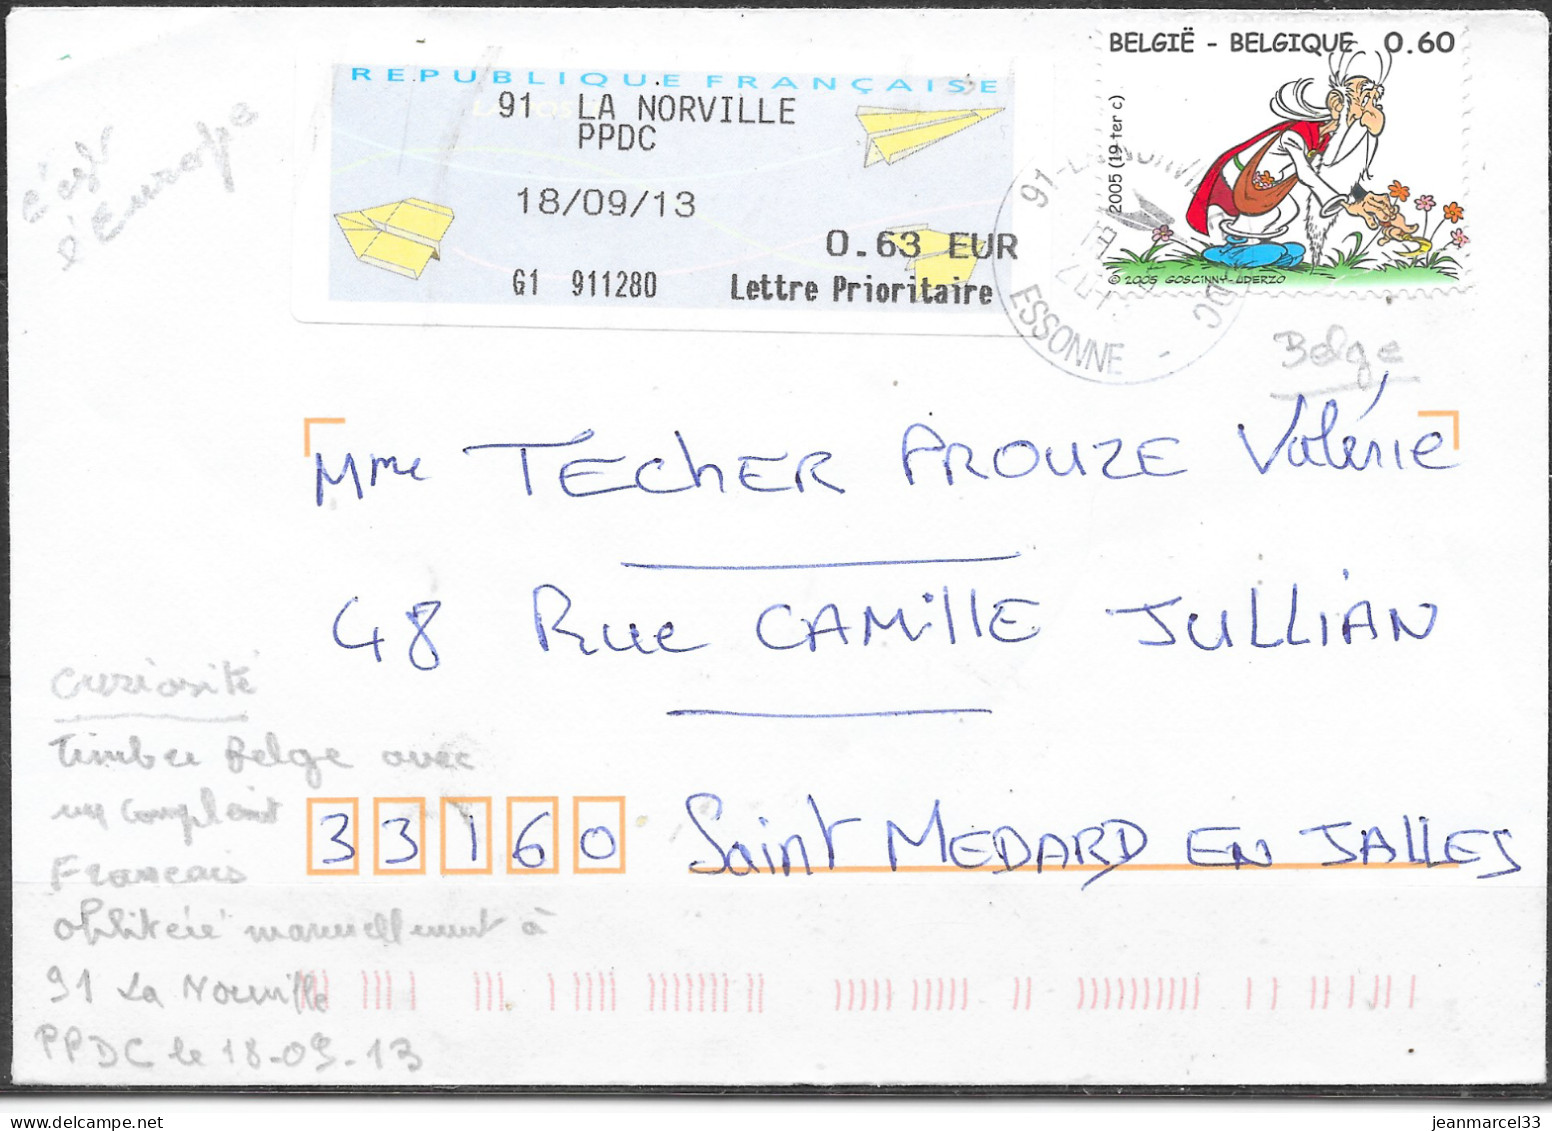 c'est
l'Europe
REPUBLIQUE FRANÇAISE
91 LA NORVILLE
PPDC
18/09/13
0.63 EUR
G1 911280 Lettre Prioritaire
BELGIË - BELGIQUE 0.60
2005 (19 ter c)
© 2005 GOSCINNY-UDERZO
91-LA NORVILLE
ESSONNE
Belge
Mme TECHER PROUZE Valérie
48 Rue CAMILLE JULLIAN
33160 Saint MEDARD EN JALLES
Curiosité
Timbre Belge avec
un complement
Francais
oblitéré manuellement à
91 La Norville
PPDC le 18-09-13
jeanmarcel33